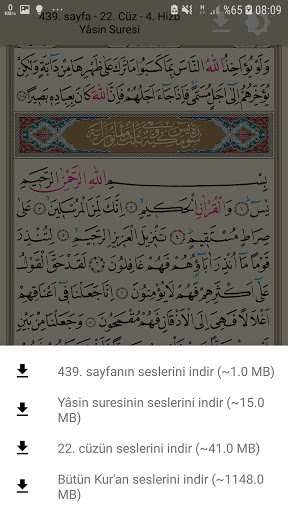 0
K/s
%65
08:09
439. sayfa - 22. Cüz - 4. Hizb
Yâsin Suresi
وَلَوْ يُؤَاخِذُ اللّٰهُ النَّاسَ بِمَا كَسَبُوا مَا تَرَكَ عَلٰى ظَهْرِهَا مِنْ دَٓابَّةٍ وَلٰكِنْ
يُؤَخِّرُهُمْ اِلٰٓى اَجَلٍ مُسَمًّى فَاِذَا جَٓاءَ اَجَلُهُمْ فَاِنَّ اللّٰهَ كَانَ بِعِبَادِهٖ بَصٖيرًا
بِسْمِ اللّٰهِ الرَّحْمٰنِ الرَّحٖيمِ
يٰسٓ ﴿١﴾ وَالْقُرْاٰنِ الْحَكٖيمِ ﴿٢﴾ اِنَّكَ لَمِنَ الْمُرْسَلٖينَ ﴿٣﴾ عَلٰى
صِرَاطٍ مُسْتَقٖيمٍ ﴿٤﴾ تَنْزٖيلَ الْعَزٖيزِ الرَّحٖيمِ ﴿٥﴾ لِتُنْذِرَ
قَوْمًا مَٓا اُنْذِرَ اٰبَٓاؤُهُمْ فَهُمْ غَافِلُونَ ﴿٦﴾ لَقَدْ حَقَّ الْقَوْلُ
عَلٰٓى اَكْثَرِهِمْ فَهُمْ لَا يُؤْمِنُونَ ﴿٧﴾ اِنَّا جَعَلْنَا فٖٓى اَعْنَاقِهِمْ
اَغْلَالًا فَهِىَ اِلَى الْاَذْقَانِ فَهُمْ مُقْمَحُونَ ﴿٨﴾ وَجَعَلْنَا مِنْ بَيْنِ
439. sayfanın seslerini indir (~1.0 MB)
Yâsin suresinin seslerini indir (~15.0
MB)
22. cüzün seslerini indir (~41.0 MB)
Bütün Kur'an seslerini indir (~1148.0
MB)